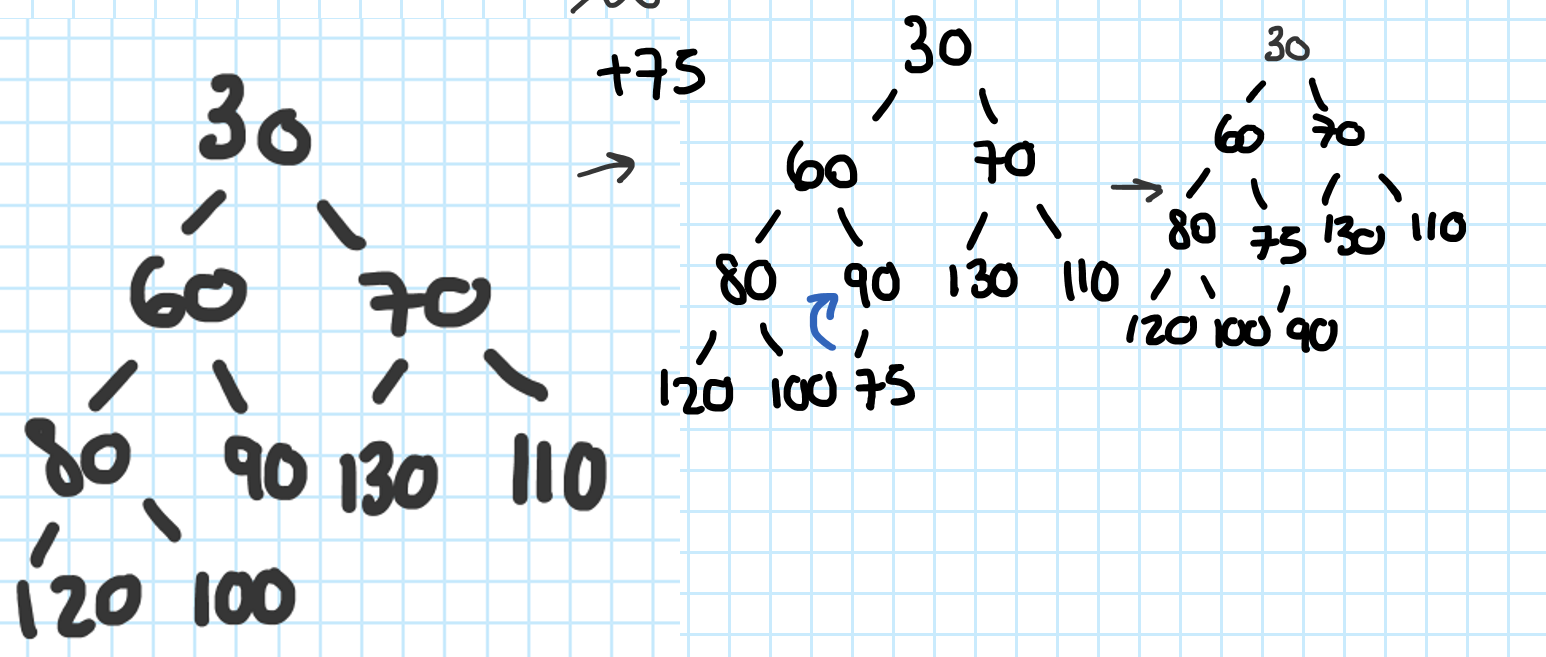 30
60 70
80 90 130 110
120 100
+75
→
30
60 70
80 90 130 110
120 100 75
→
30
60 70
80 75 130 110
120 100 90